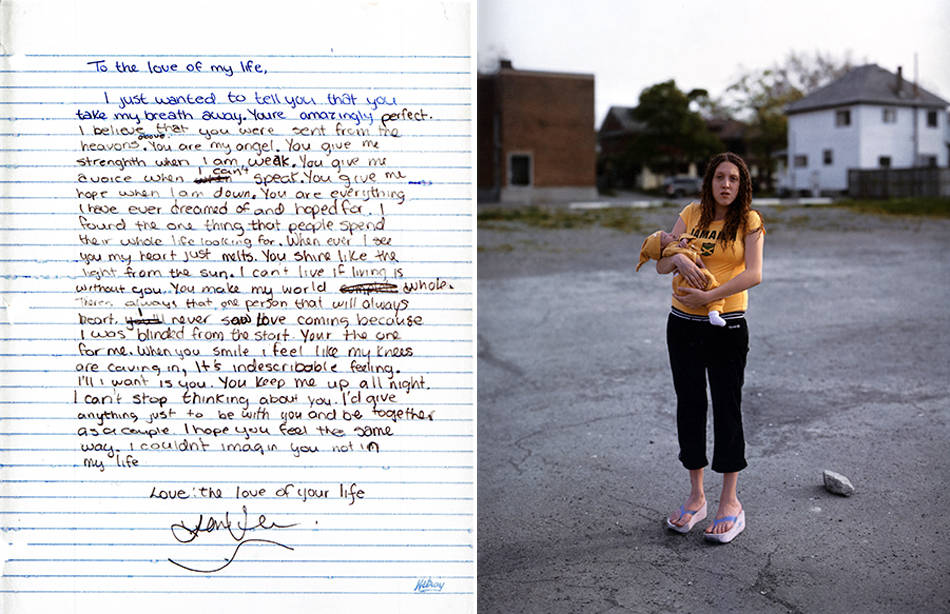 To the love of my life,
I just wanted to tell you that you
take my breath away. Youre amazingly perfect.
I believe that you were sent from the
heavons above. You are my angel. You give me
strenghth when I am weak. You give me
a voice when I can't speak. You give me
hope when I am down. You are everything
I have ever dreamed of and hoped for. I
found the one thing that people spend
their whole life looking for. When ever I see
you my heart just melts. You shine like the
light from the sun. I can't live if living is
without you. You make my world complete whole.
Theres always that one person that will always
heart. you'll I never saw love coming because
I was blinded from the start. Your the one
for me. When you smile i feel like my knees
are caving in, It's indescribable feeling.
I'll i want is you. You keep me up all night.
I can't stop thinking about you. I'd give
anything just to be with you and be together
as a couple. I hope you feel the same
way. i couldn't imagin you not in
my life
Love: the love of your life
Hilroy